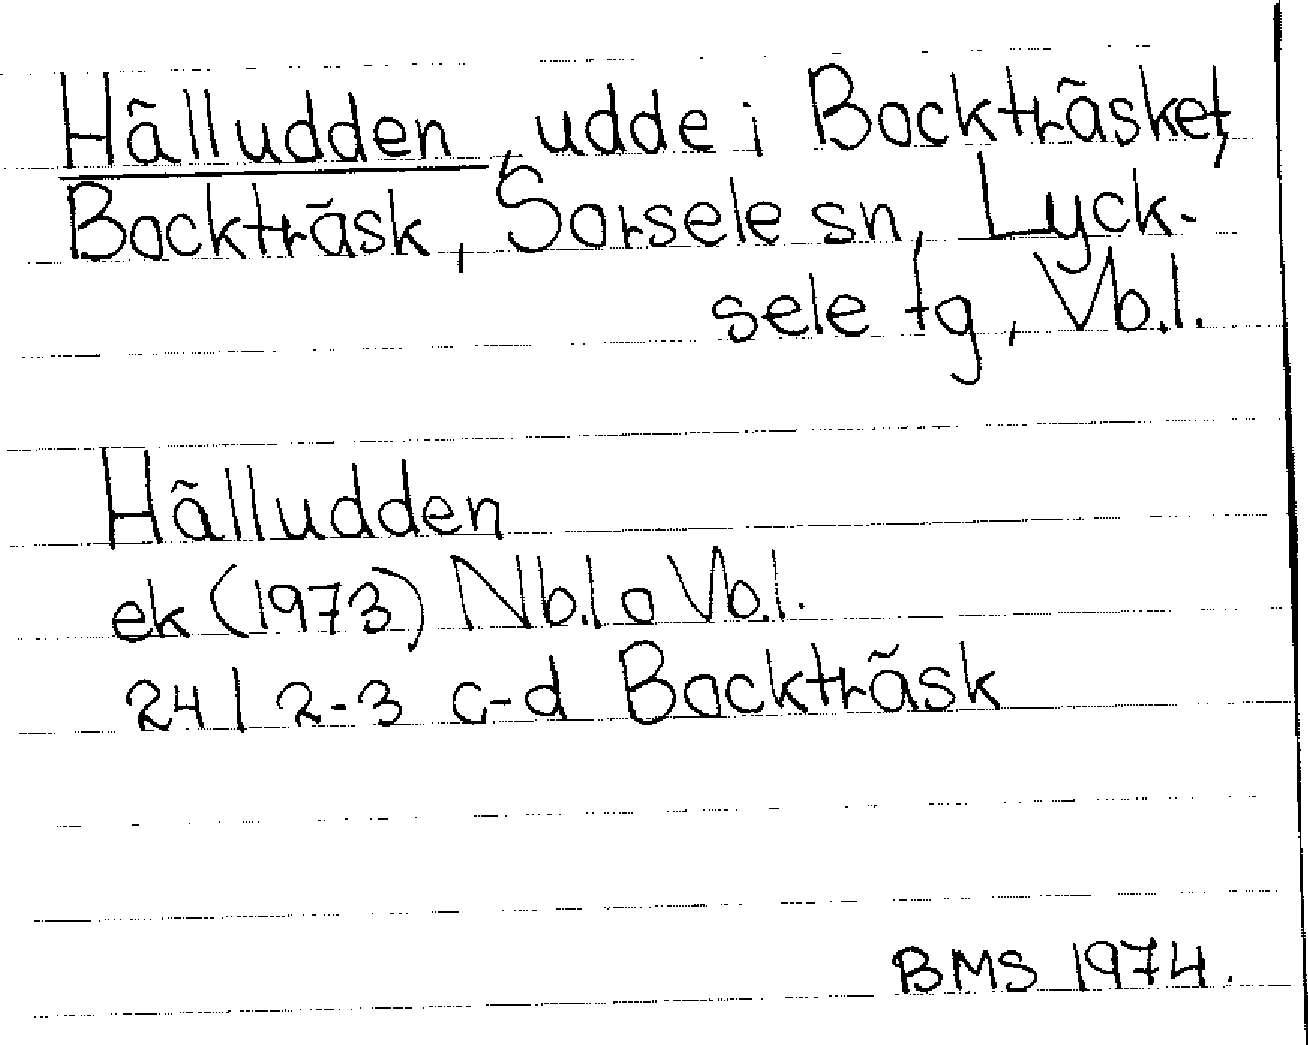 Hälludden, udde i Bockträsket,
Bockträsk, Sorsele sn, Lyck-
sele tg, Vb.l.
Hälludden
ek (1973) Nb.l o Vb.l.
24 I 2-3 c-d Bockträsk
BMS 1974.